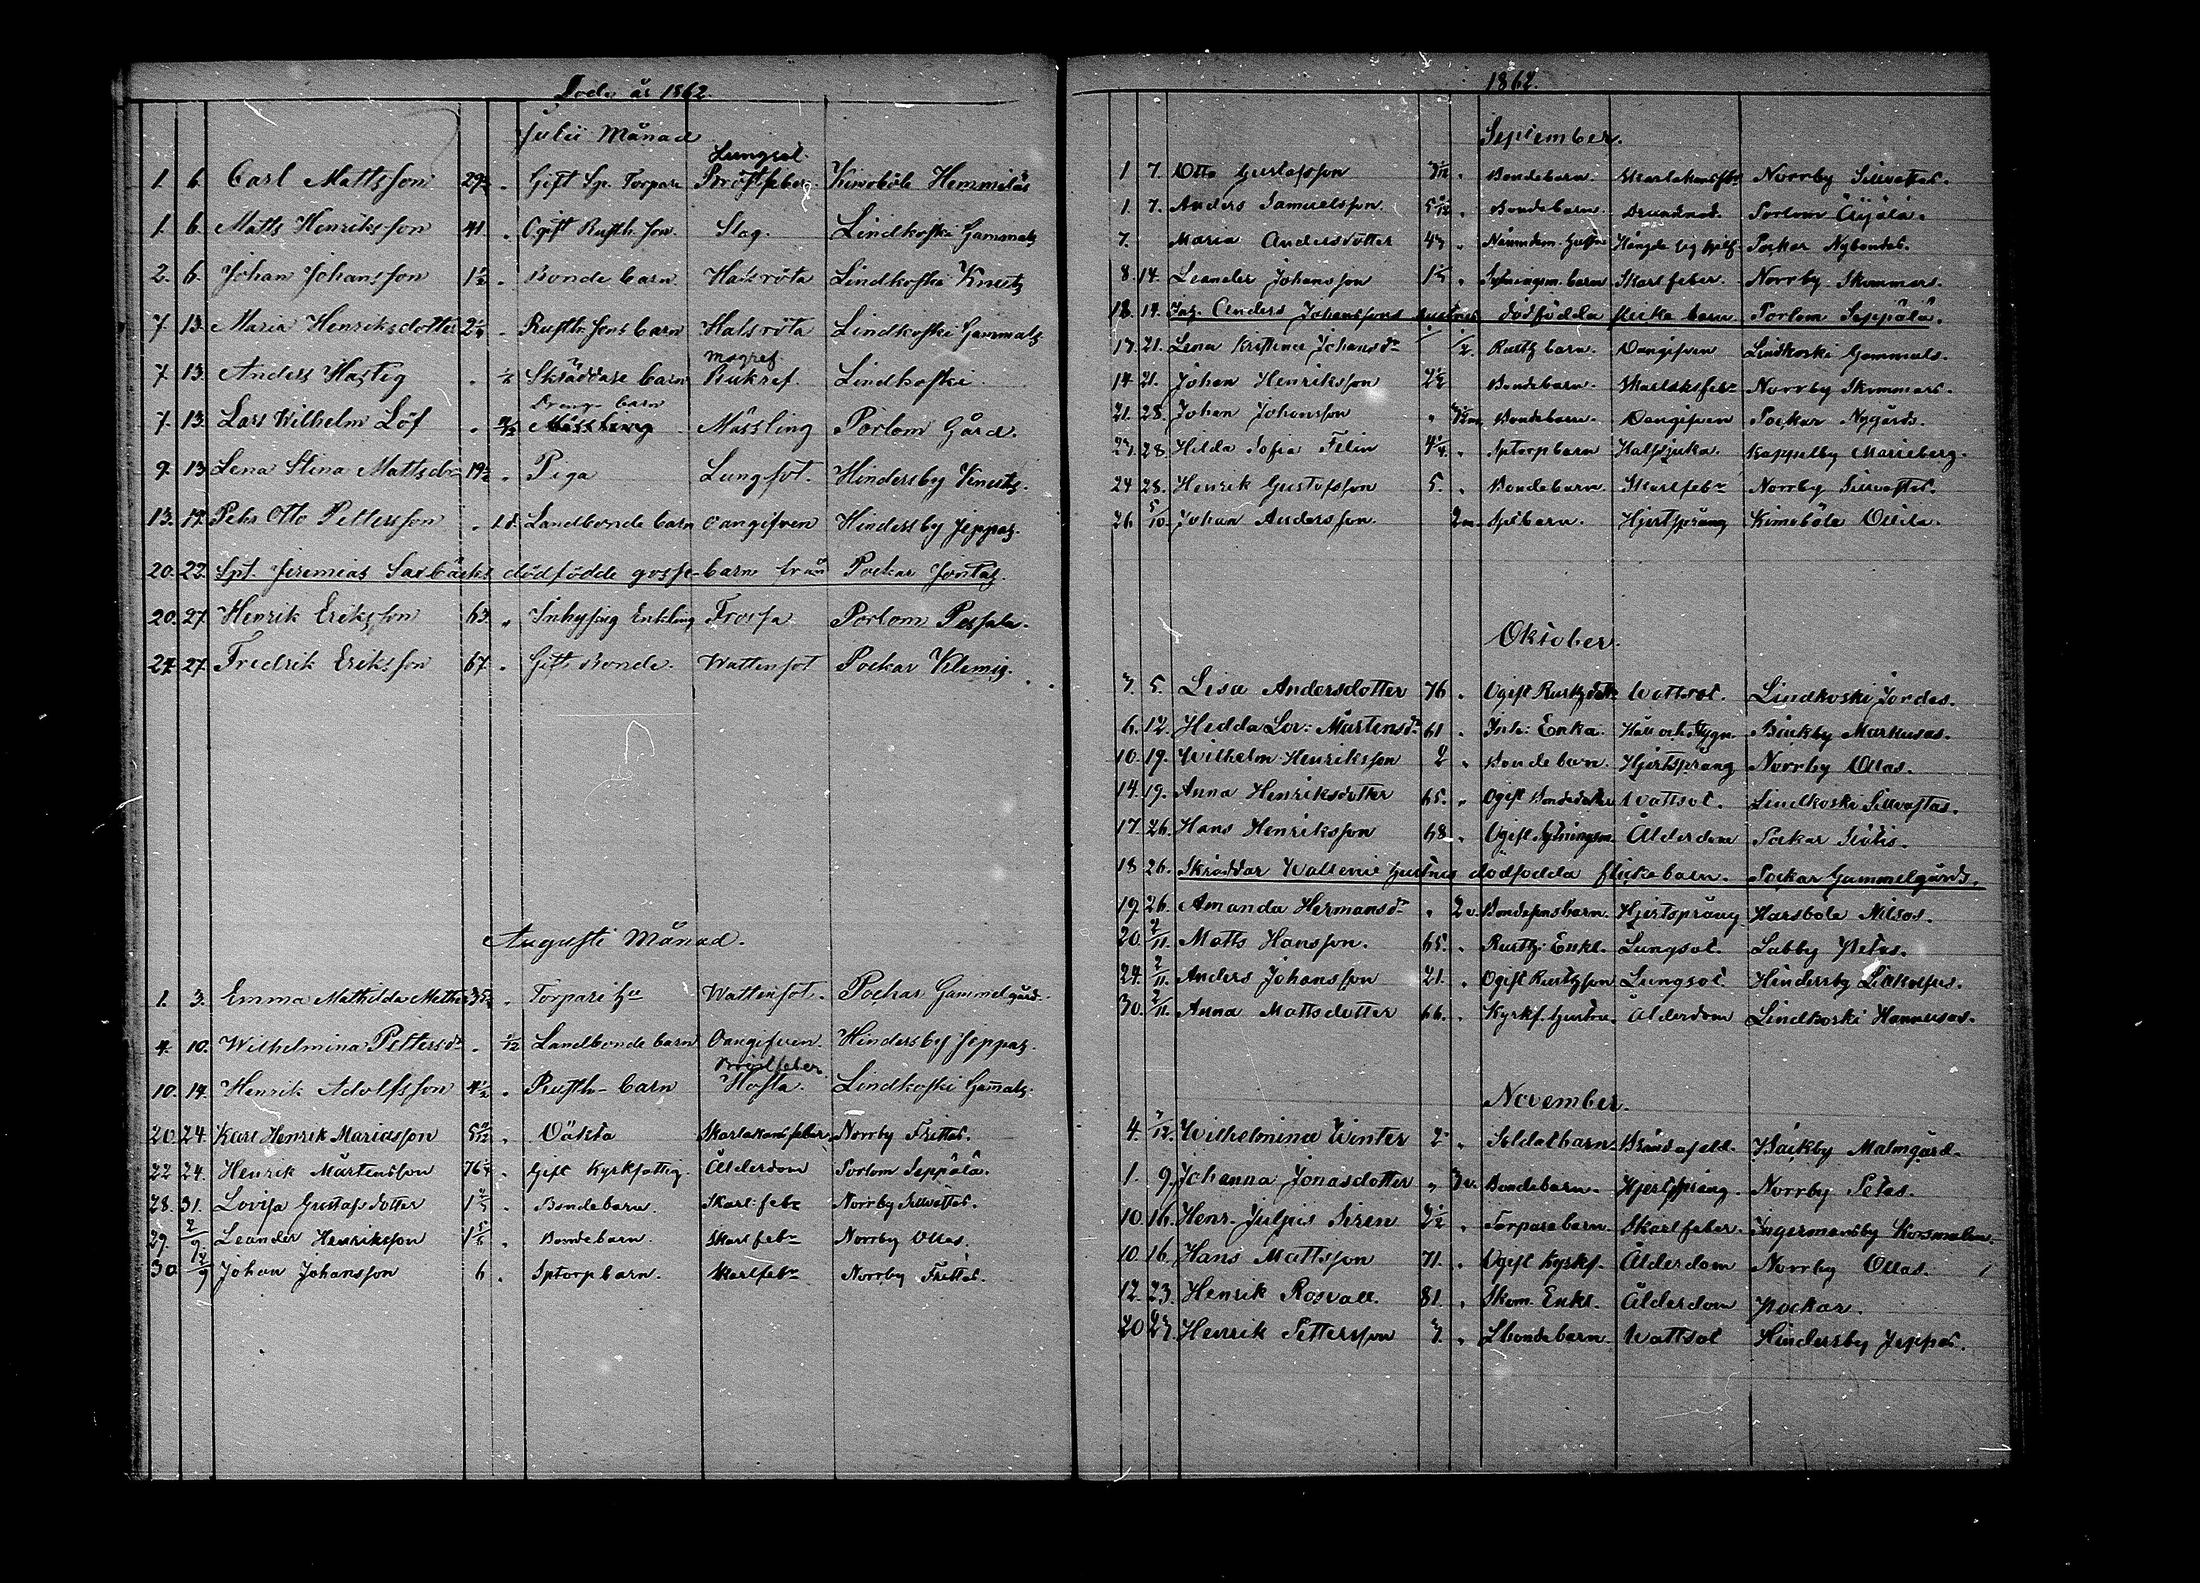 Döde år 1862.
Julii Månad
1. 6. Carl Mattsson 29½ " Gift Sp. Torpare Lungsot. Bröstfeber. Kimoböle Hemmilas
1. 6. Matts Henriksson 41 " Ogift Rusth. son Slag. Lindkoski Gammals
2. 6. Johan Johansson 1½ " Bonde barn Halsröta Lindkoski Knuts
7. 13. Maria Henriksdotter 2¼ " Rusth. sons barn Halsröta Lindkoski Gammals
7. 13. Anders Hastig " Skräddare barn Magref Bukref. Lindkoski
Dreng barn
7. 13. Lars Wilhelm Löf " Mässling Mässling Porlom Gård.
9. 13. Lena Stina Mattsdr 19½ " Piga Lungsot. Hindersby Knuts.
13. 19. Pehr Otto Pettersson " 1 d. Landbonde barn Oangifven Hindersby Jeppas.
20. 22. Spt. Jeremias Saxbäcks dödfödde gosse-barn från Pockar Jontas.
20. 27. Henrik Eriksson 63. " Inhysing Enkling Frossa Porlom Pessala.
24. 27. Fredrik Eriksson 67 " Gift Bonde. Wattensot Pockar Klemis.
Augusti Månad.
1. 3. Emma Mathilda 35½ " Torpare Hu Wattensot. Pockar Gammelgård.
4. 10. Wilhelmina Pettersdr " 1/12 Landbonde barn Oangifven. Hindersby Jeppas.
Bröstfeber
10. 14. Henrik Adolfsson 4½ " Rusth. barn Hosta. Lindkoski Gammals.
20. 24. Karl Henrik Mariasson 5 " Oäkta Skarlakansfeber. Norrby Frittas.
22 24. Henrik Mårtensson 76¼ " Gift Kyrkfattig. Ålderdom Porlom Seppälä.
28. 31. Lovisa Gustafsdotter 1 " Bondebarn. Skarl. febr Norrby Sillvastas.
29. 2/9 Leander Henriksson 1 " Bondebarn. Skarlfebr Norrby Ollas.
30 7/9 Johan Johansson 6 " Sptorpbarn. Skarlfebr Norrby Frittas.
1862.
September.
1 7. Otto Gustafsson " Bondebarn. Skarlakansfbr Norrby Sillvastas.
1. 7. Anders Samuelsson 5 " Bondebarn. Drunknad. Porlom Äijälä.
7. Maria Andersdotter 47 " Nämndem. Hustru Hängde sig sjelf. Pockar Nybondas.
8. 14. Leander Johansson 1 " Sytningsm. barn Skarlfeber. Norrby Skommars.
18. 19. Inh. Anders Johanssons hustrus dödfödda flicke barn Porlom Seppälä.
17. 21. Lena Kristina Johansdr " /2. Rusth barn. Oangifven Lindkoski Gammals.
14 21. Johan Henriksson 2½ Bondebarn. Skarlaksfebr Norrby Skommars.
21. 28. Johan Johansson " Bondebarn. Oangifven Pockar Nygårds.
27. 28. Hilda Sofia Felin 4¼. " Sptorpbarn Halssjuka. Kappelby Marieberg.
24 28. Henrik Gustafsson 5. " Bondebarn. Skarlfebr Norrby Sillvastas.
26. 5/10. Johan Andersson. 2m Spsbarn. Hjertsprång Kimoböle Ollila.
Oktober.
3. 5. Lisa Andersdotter 76 " Ogift Rusthdott. Wattsot. Lindkoski Jordas.
6. 12. Hedda Lov: Mårtensdr 61 " Inh: Enka. Håll och Stygn Bäckby Markusas.
10. 19. Wilhelm Henriksson 2 " Bondebarn. Hjertsprång Norrby Ollas.
14. 19. Anna Henriksdotter 65. " Ogift Bondedotter Wattsot. Lindkoski Sillvastas.
17. 26. Hans Henriksson 68 " Ogift Sytningsm. Ålderdom Pockar
18 26. Skräddar Wallenii hustrus dödfödda flickebarn. Pockar Gammelgårds.
19. 26. Amanda Hermansdr " 2v. Bondesonsbarn. Hjertsprång Harsböle Nilsas.
20. 2/11. Matts Hansson. 65. " Rusth: Enkl. Lungsot. Labby Petas.
24. 2/11. Anders Johansson 21. " Ogift Rusthsson Lungsot. Hindersby
30. 2/11. Anna Mattsdotter 66. " Kyrkf. Hustru. Ålderdom Lindkoski Hannusas.
November.
4. 7/12. Wilhelmina Winter 2 " Soldatbarn Bäckby Malmgård.
1. 9. Johanna Jonasdotter " 3v. Bondebarn. Hjertsprång. Norrby Petas.
10. 16. Henr. Julius Siren 3½ " Torparebarn. Skarlfeber. Ingermansby Korsmalm.
10 16. Hans Mattsson 71. " Ogift Kyrkf. Ålderdom Norrby Ollas.
12. 23. Henrik Rosvall. 81. " Skom. Enkl. Ålderdom Pockar.
20 23. Henrik Pettersson 3. " Lbondebarn. Wattsot Hindersby Jeppas.